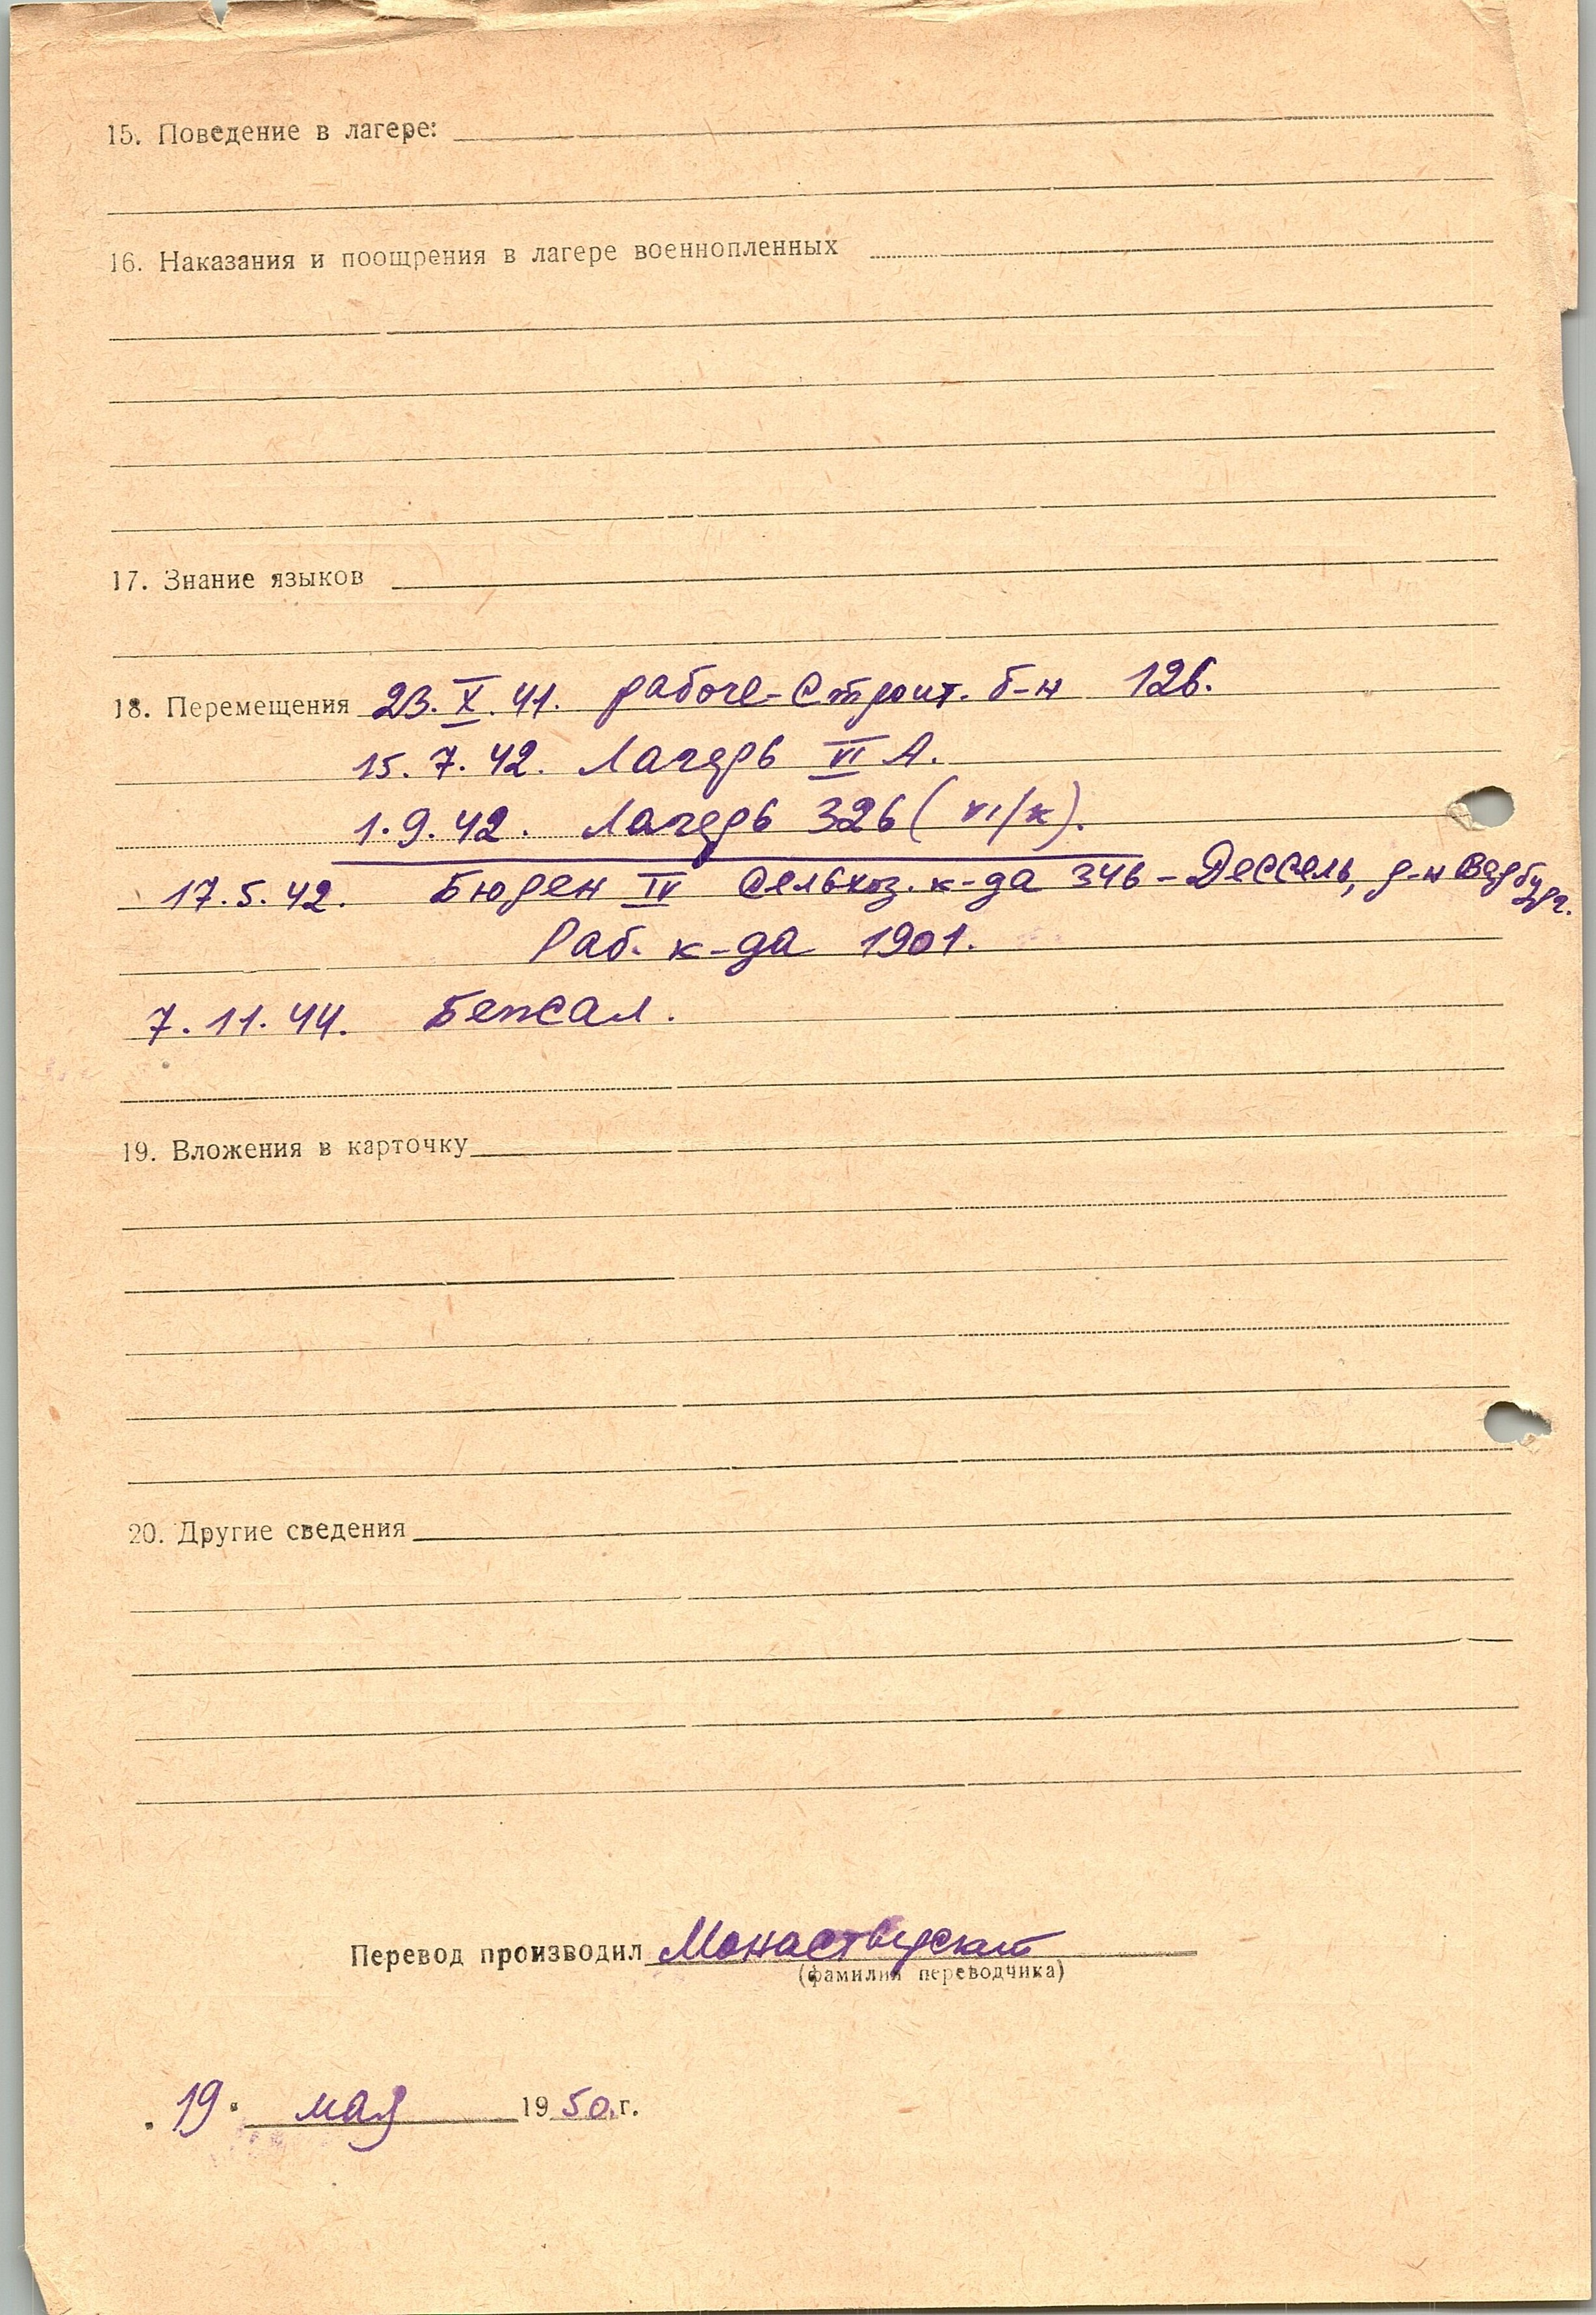 15. Поведение в лагере:
16. Наказания и поощрения в лагере военнопленных
17. Знание языков
18. Перемещения 23.X.41. рабоче-строит. б-н 126.
15.7.42. Лагерь VI А.
1.9.42. Лагерь 326 (VI/к).
17.5.42. Бюрен IV Сельхоз. к-да 346 - Дессель, р-н Варбург.
Раб. к-да 1901.
7.11.44. Бежал.
19. Вложения в карточку
20. Другие сведения
Перевод производил Монастырский
(фамилия переводчика)
"19" мая 1950 г.